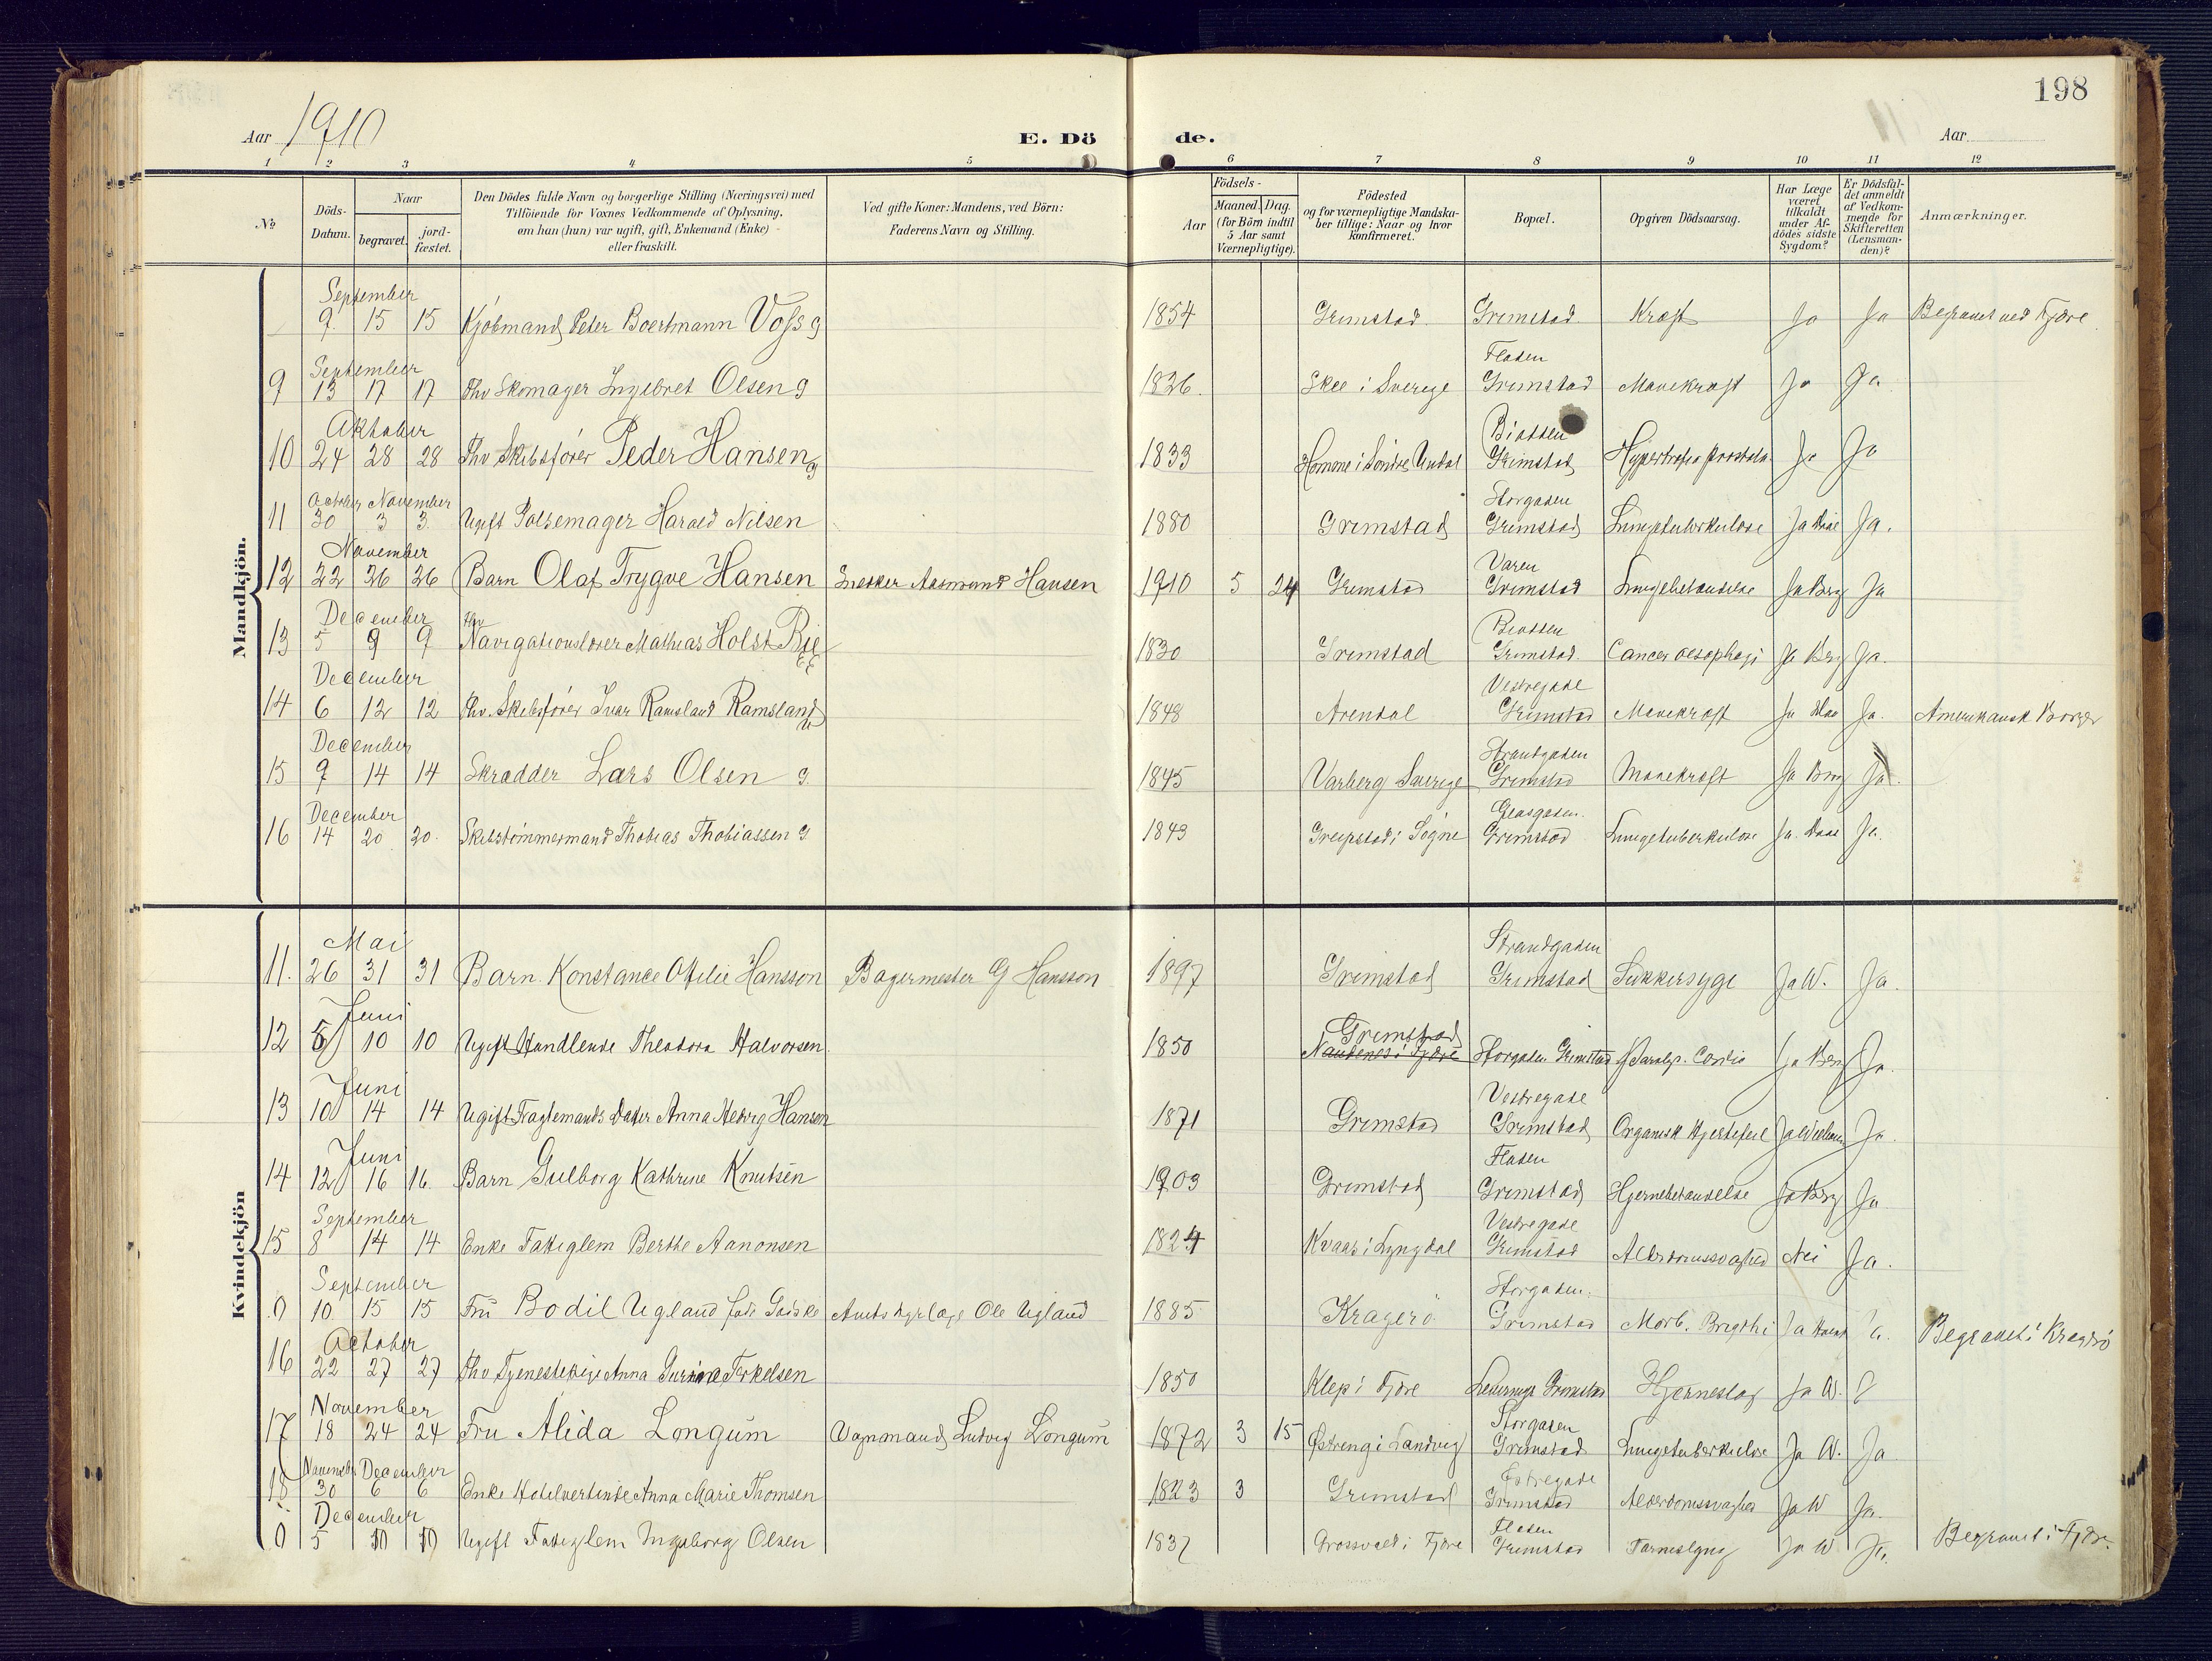 198
Aar 1910 E. Dö de. Aar
1 2 3 4 5 6 7 8 9 10 11 12
No
Döds-Datum.
Naar
begravet. jord-fæstet.
Den Dödes fulde Navn og borgerlige Stilling (Næringsvei) med
Tilföiende for Voxnes Vedkommende af Oplysning,
om han (hun) var ugift, gift, Enkemand (Enke)
eller fraskilt.
Ved gifte Koner: Mandens, ved Börn:
Faderens Navn og Stilling.
Födsels-
Aar Maaned. Dag.
(for Börn indtil
5 Aar samt
Værnepligtige).
Födested
og for værnepligtige Mandska-
ber tillige: Naar og hvor
konfirmeret.
Bopæl.
Opgiven Dödsaarsag.
Har Læge
været
tilkaldt
under Af-
dödes sidste
Sygdom?
Er Dödsfal-
det anmeldt
af Vedkom-
mende for
Skifteretten
(Lensman-
den)?
Anmærkninger.
Mandkjön.
September
9. 15 15 Kjøbmand Peter Boertmann Voss g 1854 Grimstad Grimstad Kræft Ja Ja Begravet ved Fjære
September Fladen
9 13 17 17 Fhv Skomager Ingebret Olsen g 1826. Skee i Sverige Grimstad Mavekræft Ja Ja
Oktober Biodden
10 24 28 28 Fhv Skibsfører Peder Hansen g 1833 Homme i Søndre Undal Grimstad Hypertrofia prostata Ja Ja
October November Storgaden
11 30 3 3 Ugift Pølsemager Harald Nilsen 1880 Grimstad Grimstad Lungetuberkulose Ja Daae Ja.
November Varen
12 22 26 26 Barn Olaf Trygve Hansen Snekker Aasmund Hansen 1910 5 24 Grimstad Grimstad Lungebetændelse Ja Berg Ja
December Biodden
13 5 9 9 Fhv Navigationslærer Mathias Holst Bie 1830 Grimstad Grimstad. Cancer oesophagi Ja Berg Ja.
December Vestregade
14 6 12 12 Fhv. Skibsfører Ivar Ramsland Ramsland 1848 Arendal Grimstad Mavekræft Ja Ja. Amerikansk Borger
December Strandgaden
15 9 14 14 Skrædder Lars Olsen g. 1845 Varberg Sverige Grimstad Mavekræft Ja Berg Ja.
December
16 14 20 20. Skibstømmermand Thobias Thobiassen g 1843 Greipstad i Søgne Grimstad Lungetuberkulose Ja. Daae Ja.
Kvindekjön
Mai Strandgaden
11. 26 31 31 Barn. Konstance Otilie Hansson Bagermester G Hansson 1897 Grimstad Grimstad Sukkersyge Ja W. Ja.
Juni Grimstad
12 5 10 10 Ugift Handlende Theodora Halvorsen. 1850 Storgaden Grimstad Paralys. Cordis Ja Berg Ja.
Juni Vestregade
13 10 14 14 Ugift Fragtemands Datter Anna Hedvig Hansen 1871 Grimstad Grimstad Organisk Hjertefeil Ja Ja.
Juni Fladen
14 12 16 16. Barn Gulborg Kathrine Knutsen 1903 Grimstad Grimstad Hjernebetændelse Ja Berg Ja
September Vestregade
15 8 14 14 Enke Fattiglem Berthe Aanonsen 1824 Kvaas i Lyngdal Grimstad Alderdomssvaghed Nei Ja.
September Storgaden.
0 10. 15 15 Fru Bodil Ugland født Ole Ugland 1885 Kragerø Grimstad Morb. Brigthi Ja Ja. Begravet i Kragerø
October
16 22 27 27 Fhv Tjenestepige Anna Gurine Terkelsen 1850 Klep i Fjære Grimstad Hjerneslag Ja W.
November Storgaden
17 18 24 24 Fru Alida Longum Vognmand Ludvig Longum 1872 3 15 Østreng i Landvig Grimstad Lungetuberkulose Ja W. Ja
November December Østregade
18 30 6 6 Enke Hotelvertinde Anna Marie Thomsen 1823 3 Grimstad Grimstad Alderdomssvaghed Ja W Ja.
December Fladen
0 5 10 10 Ugift Fattiglem Ingeborg Olsen 1837 Grosvold i Fjære Grimstad Tarmslyng Ja W Ja. Begravet i Fjære